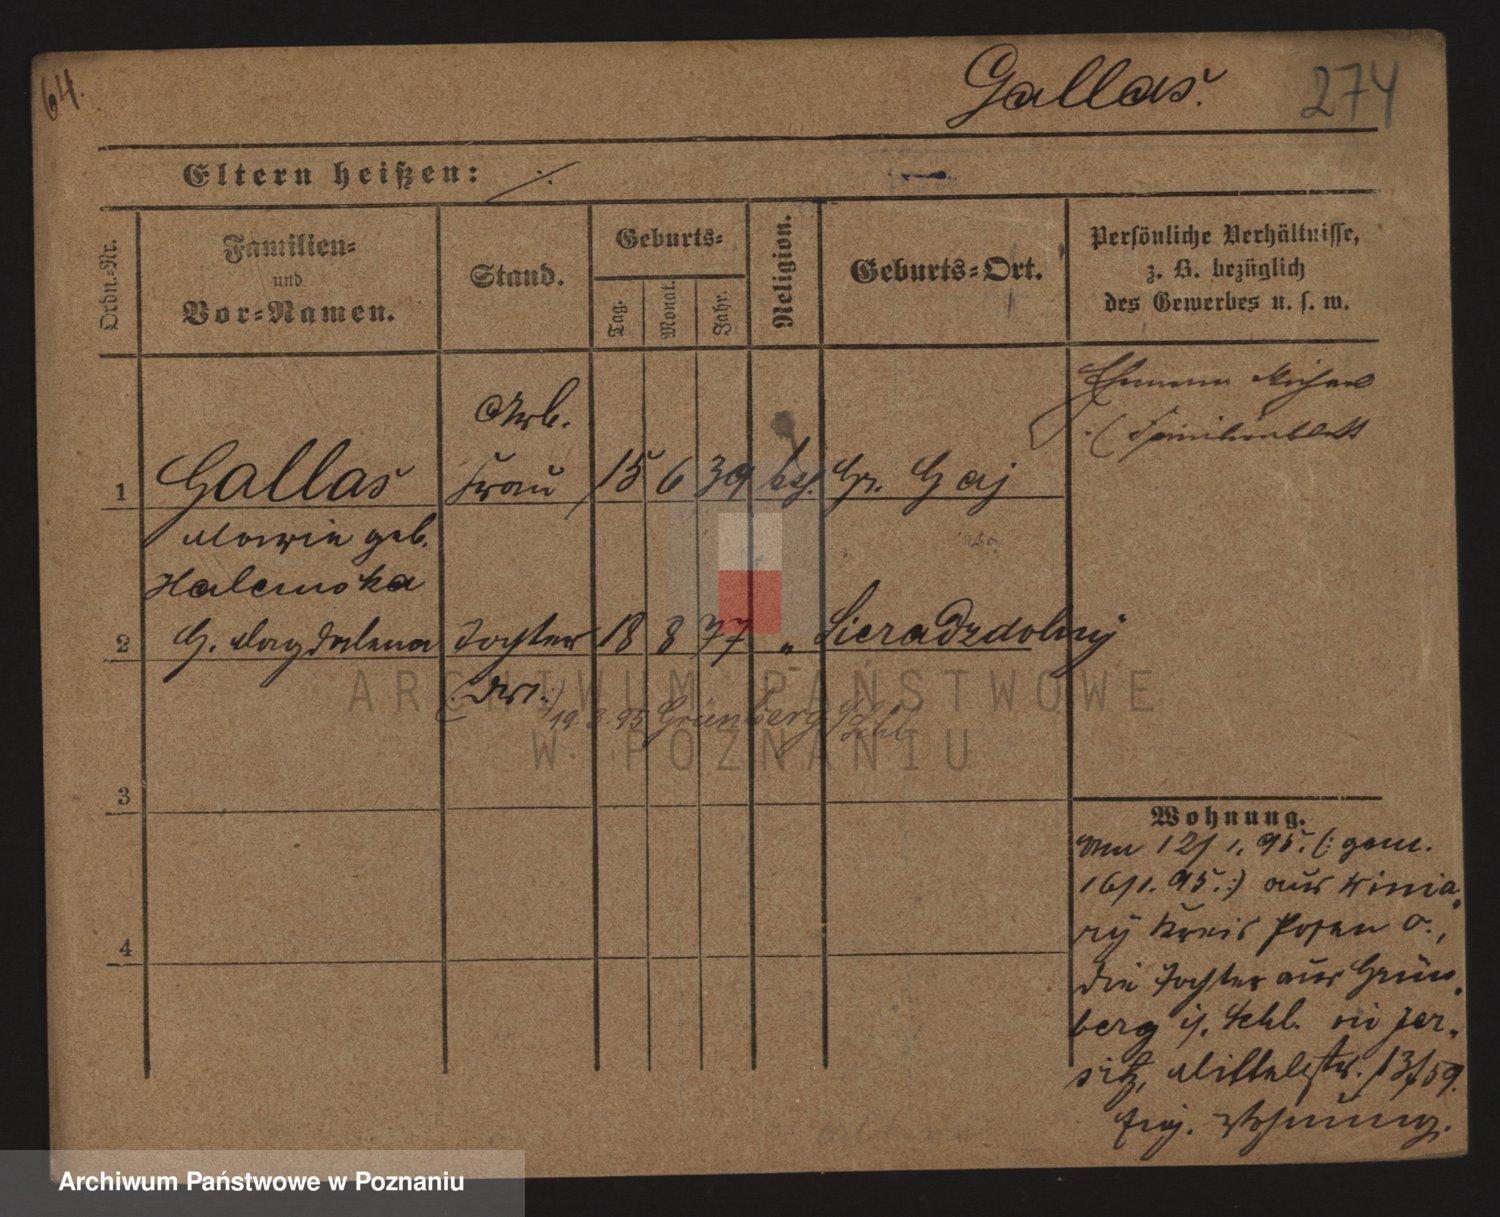 64.
Gallas.
274
Eltern heißen: ·/.
Ordn.-Nr.
Familien-
und
Vor-Namen.
Stand.
Geburts-
Tag.
Monat.
Jahr.
Religion.
Geburts-Ort.
Persönliche Verhältnisse,
z. B. bezüglich
des Gewerbes u. s. w.
Ehemann Michael
(Familienblatt
Arb.
1 Gallas Frau 15 6 39 Gr. Gaj
Maria geb.
Halemska
2 G. Magdalena Tochter 18 8 77 " Sieradzdolny
19.3.95 Grünberg Schl
3
4
Wohnung.
Am 12/1.95. (: gem.
16/1.95. :) aus Winia,
ry Kreis Posen O.,
die Tochter aus Grün,
berg i/. Schl. in Jer,
sitz, Mittelstr. 13/59.
eig. Wohnung.
ARCHIWUM PAŃSTWOWE
W POZNANIU
Archiwum Państwowe w Poznaniu